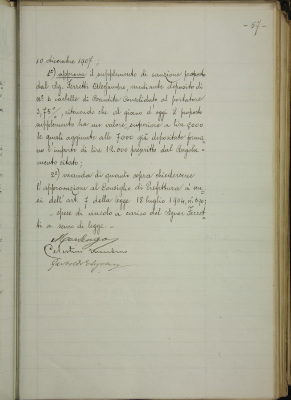 - 57 -
10 dicembre 1907;
1°) approva il supplemento di cauzione proposto
dal Sig. Ferretti Alessandro, mediante deposito di
N° 2 cartelle di Rendita Consolidato al portatore
3,75%, ritenendo che al giorno d'oggi il proposto
supplemento ha un valore superiore a lire 5000
le quali aggiunte alle 7000 già depositate forma
no l'importo di lire 12.000 prescritto dal Regola
mento citato;
2°) manda di quanto sopra chiedersene
l'approvazione al Consiglio di Prefettura ai sen
si dell'art. 7 della legge 18 luglio 1904, n. 390;
- spese di vincolo a carico del Signor Ferret
ti a sensi di legge. -